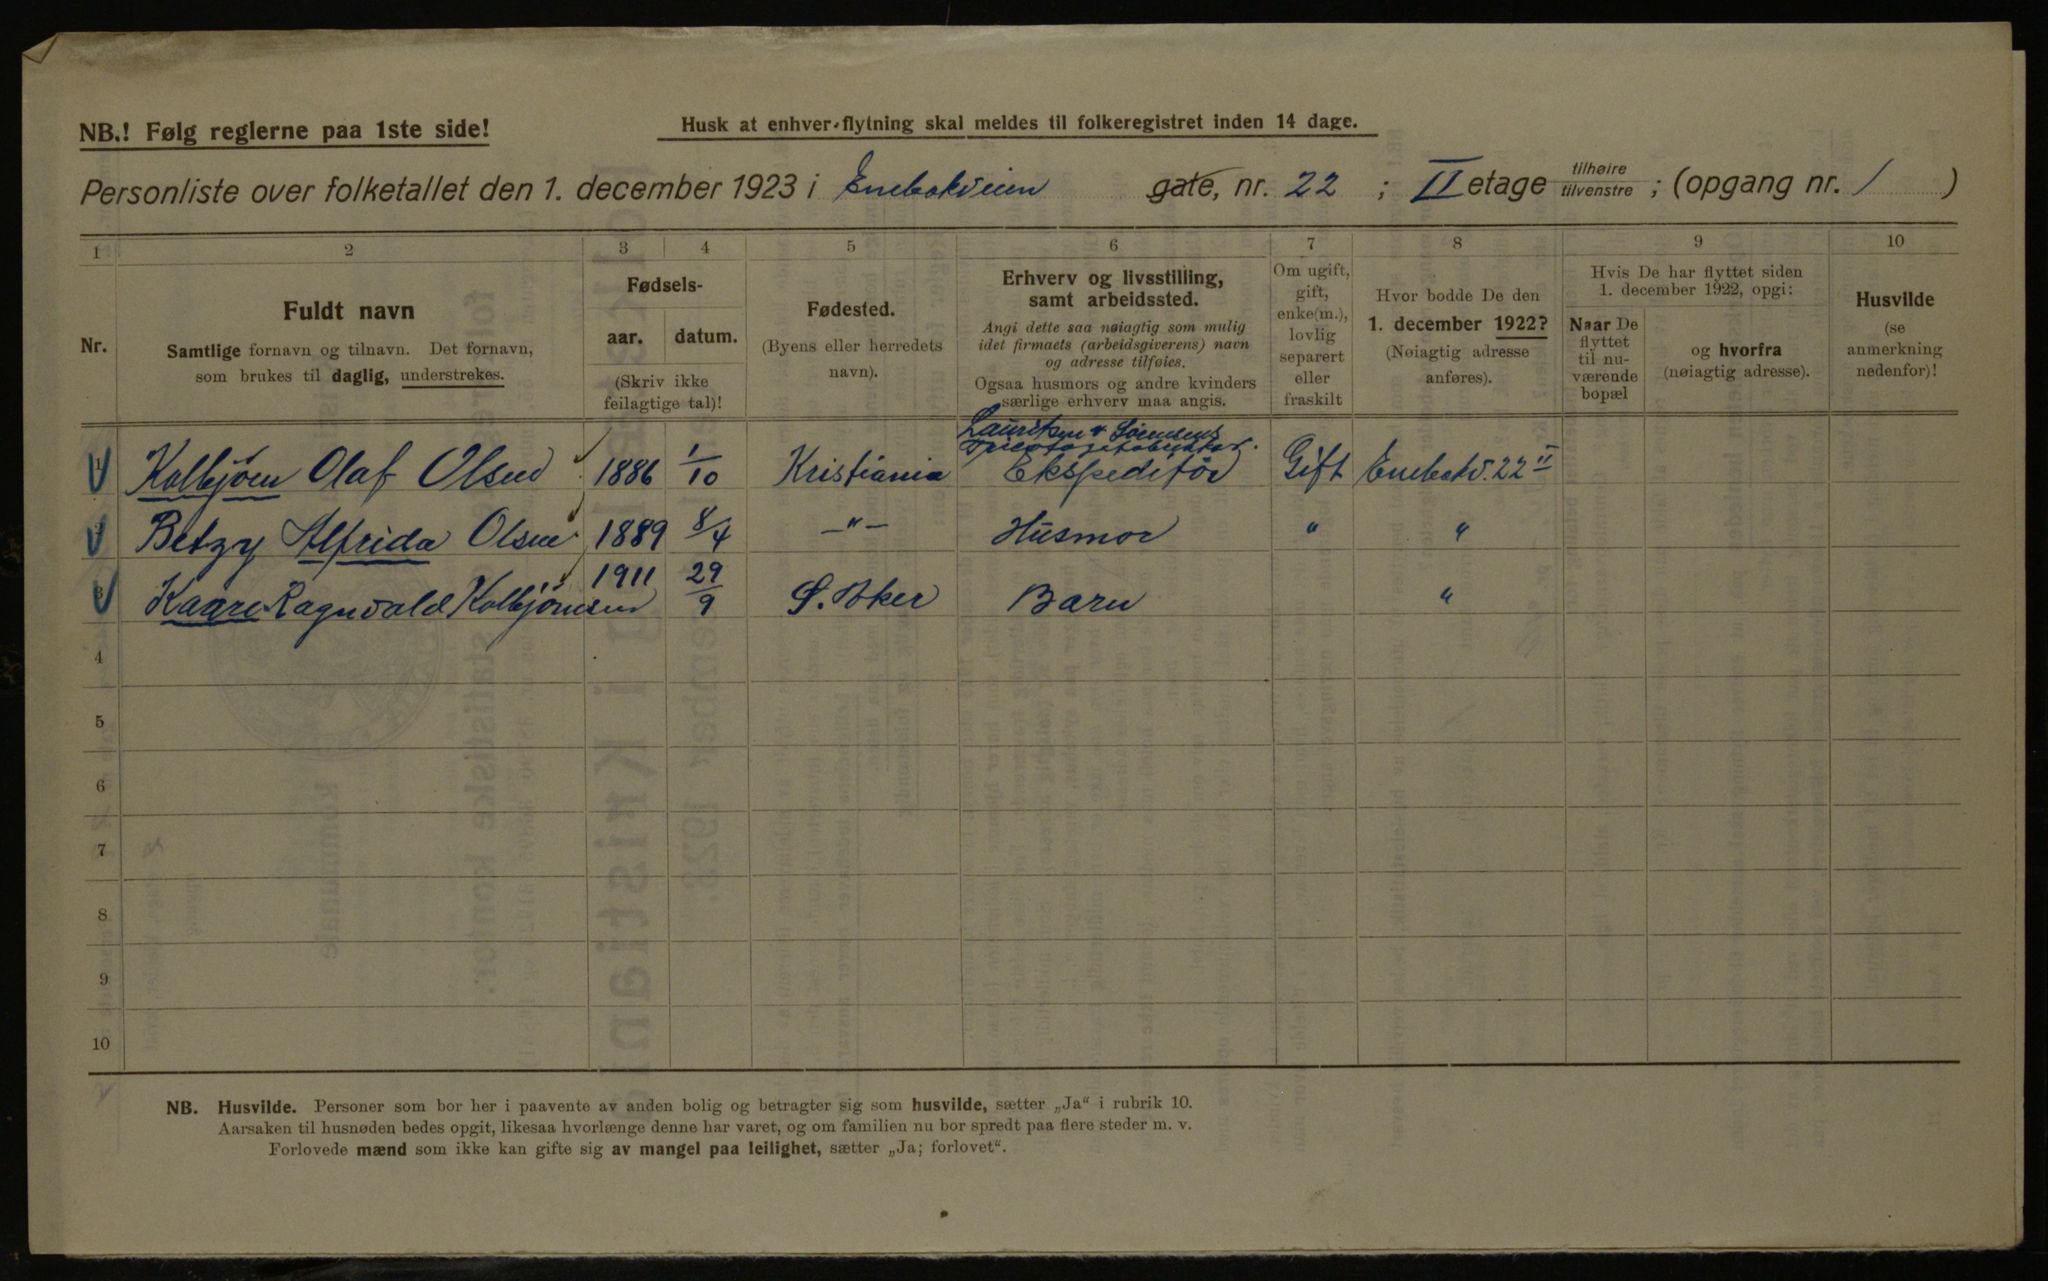 NB.! Følg reglerne paa 1ste side!
Husk at enhver flytning skal meldes til folkeregistret inden 14 dage.
Personliste over folketallet den 1. december 1923 i Enebakveien gate, nr. 22 ; II etage tilhøire tilvenstre ; (opgang nr. 1 )
1 2 3 4 5 6 7 8 9 10
Nr.
Fuldt navn
Samtlige fornavn og tilnavn. Det fornavn,
som brukes til daglig, understrekes.
Fødsels-
aar. datum.
(Skriv ikke
feilagtige tal)!
Fødested.
(Byens eller herredets
navn).
Erhverv og livsstilling,
samt arbeidssted.
Angi dette saa nøiagtig som mulig
idet firmaets (arbeidsgiverens) navn
og adresse tilføies.
Ogsaa husmors og andre kvinders
særlige erhverv maa angis.
Om ugift,
gift,
enke(m.),
lovlig
separert
eller
fraskilt
Hvor bodde De den
1. december 1922?
(Nøiagtig adresse
anføres).
Hvis De har flyttet siden
1. december 1922, opgi:
Naar De
flyttet
til nu-
værende
bopæl
og hvorfra
(nøiagtig adresse).
Husvilde
(se
anmerkning
nedenfor)!
Lauritzen & Sørensens
1 Kolbjörn Olaf Olsen 1886 1/10 Kristiania Ekspeditör Gift Enebakv. 22 II
2 Betzy Alfrida Olsen 1889 8/4 —"— Husmor " "
3 Kaare Ragnvald Kolbjörnsen 1911 29/9 S. Aker Barn "
4
5
6
7
8
9
10
NB. Husvilde. Personer som bor her i paavente av anden bolig og betragter sig som husvilde, sætter „Ja“ i rubrik 10.
Aarsaken til husnøden bedes opgit, likesaa hvorlænge denne har varet, og om familien nu bor spredt paa flere steder m. v.
Forlovede mænd som ikke kan gifte sig av mangel paa leilighet, sætter „Ja; forlovet“.